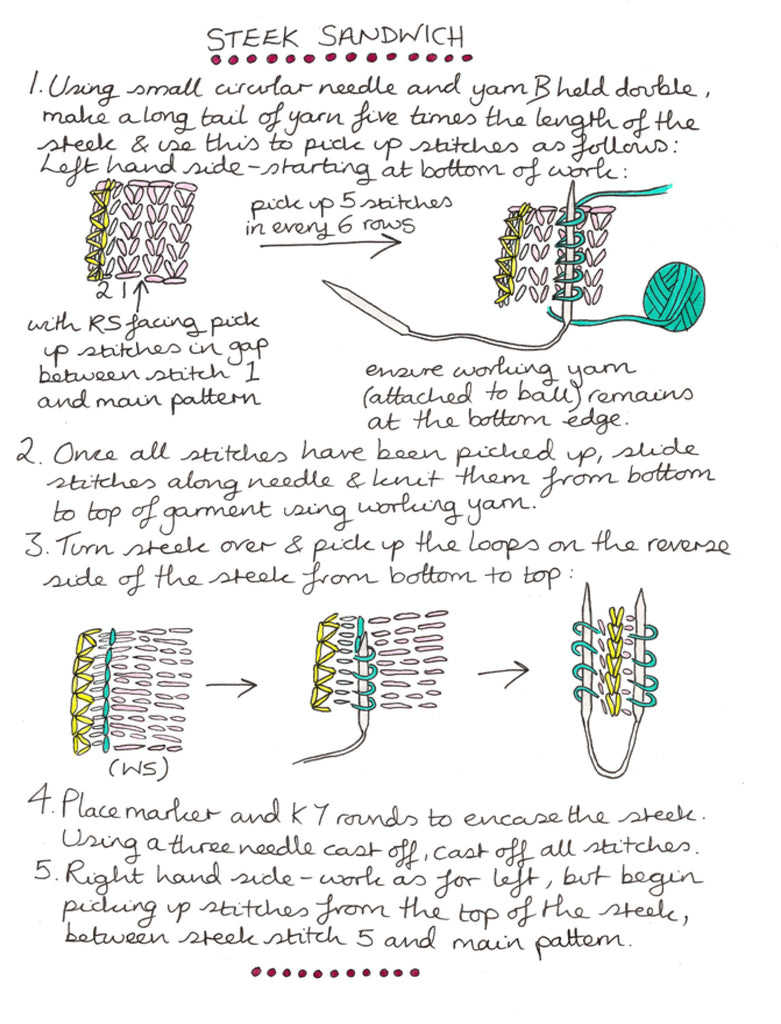 STEEK SANDWICH
1. Using small circular needle and yarn B held double,
make a long tail of yarn five times the length of the
steek & use this to pick up stitches as follows:
Left hand side - starting at bottom of work:
pick up 5 stitches
in every 6 rows
2 1
with RS facing pick
up stitches in gap
between stitch 1
and main pattern
ensure working yarn
(attached to ball) remains
at the bottom edge.
2. Once all stitches have been picked up, slide
stitches along needle & knit them from bottom
to top of garment using working yarn.
3. Turn steek over & pick up the loops on the reverse
side of the steek from bottom to top:
(WS)
4. Place marker and K 7 rounds to encase the steek.
Using a three needle cast off, cast off all stitches.
5. Right hand side - work as for left, but begin
picking up stitches from the top of the steek,
between steek stitch 5 and main pattern.